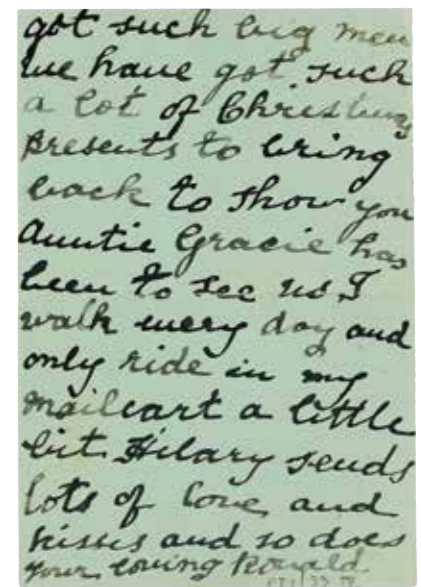 got such big men
we have got such
a lot of Christmas
presents to bring
back to show you
Auntie Gracie has
been to see us I
walk every day and
only ride in my
mailcart a little
bit. Hilary sends
lots of love and
kisses and so does
your loving Ronald.